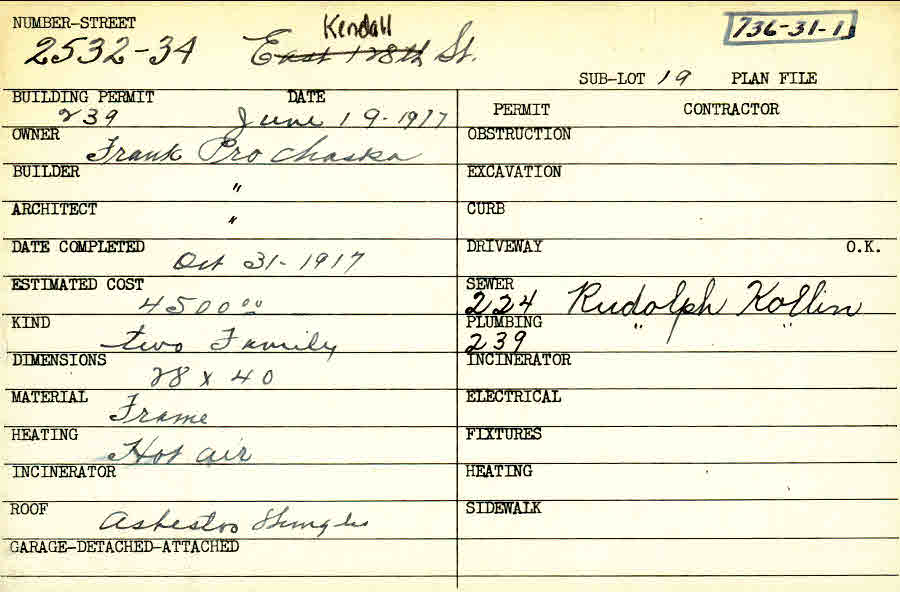 NUMBER-STREET
Kendall
736-31-1
2532-34 East 128th St.
SUB-LOT 19 PLAN FILE
BUILDING PERMIT DATE
239 June 19-1917
PERMIT CONTRACTOR
OWNER
Frank Prochaska
OBSTRUCTION
BUILDER
"
EXCAVATION
ARCHITECT
"
CURB
DATE COMPLETED
Oct 31-1917
DRIVEWAY O.K.
ESTIMATED COST
4500.00
SEWER
224 Rudolph Kollin
KIND
two Family
PLUMBING
239 " "
DIMENSIONS
28 x 40
INCINERATOR
MATERIAL
Frame
ELECTRICAL
HEATING
Hot air
FIXTURES
INCINERATOR
HEATING
ROOF
Asbestos Shingles
SIDEWALK
GARAGE-DETACHED-ATTACHED